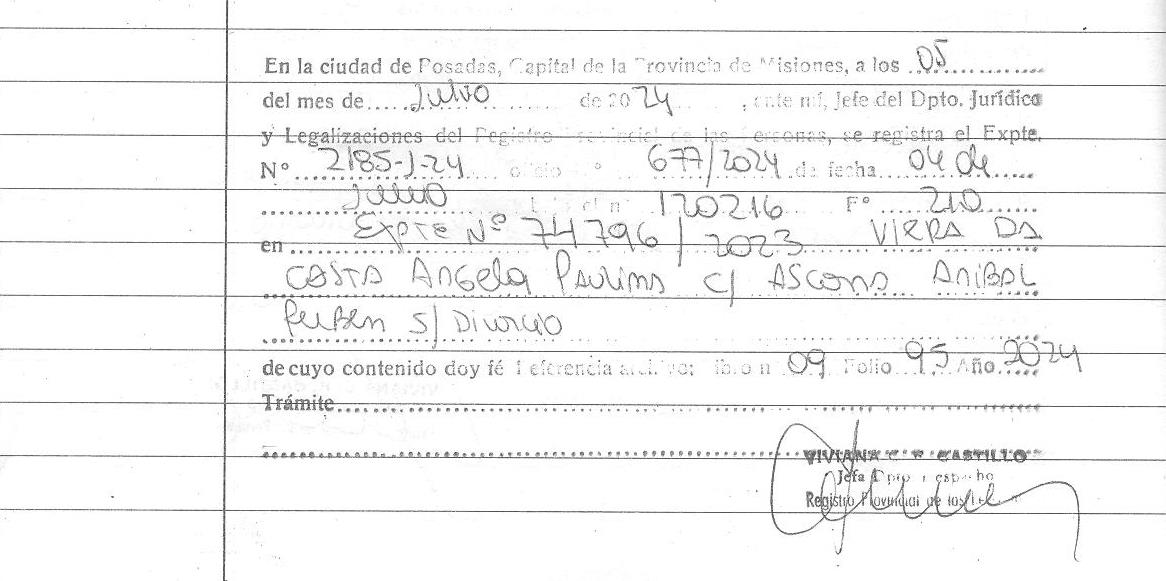 En la ciudad de Posadas, Capital de la Provincia de Misiones, a los 05
del mes de Julio de 2024, ante mí, Jefe del Dpto. Jurídico
y Legalizaciones del Registro Provincial de las Personas, se registra el Expte.
N° 2185-J-24 oficio N° 677/2024 de fecha 04 de
Julio 120216 F° 210
en Expte Nº 74796/2023 VIERA DA
COSTA Angela Paulina c/ Ascona Anibal
Ruben s/ Divorcio
de cuyo contenido doy fé Referencia archivo: libro n 09 Folio 95 Año 2024
Trámite
VIVIANA C. R. CASTILLO
Jefa Dpto Despacho
Registro Provincial de las